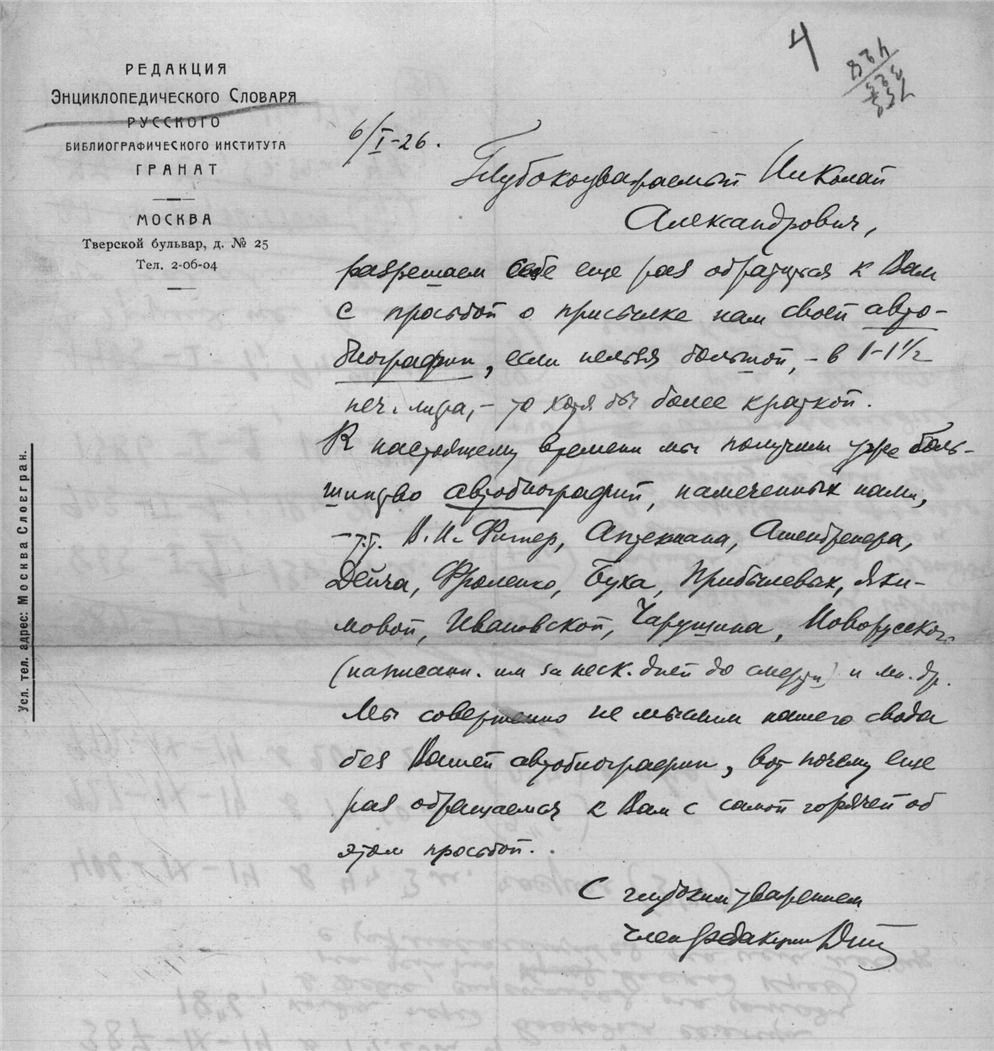 4
РЕДАКЦИЯ
ЭНЦИКЛОПЕДИЧЕСКОГО СЛОВАРЯ
РУССКОГО
БИБЛИОГРАФИЧЕСКОГО ИНСТИТУТА
ГРАНАТ
МОСКВА
Тверской бульвар, д. № 25
Тел. 2-06-04
Усл. тел. адрес: Москва Слоегран.
6/I-26.
Глубокоуважаемый Николай
Александрович,
разрешаем себе еще раз обратиться к Вам
с просьбой о присылке нам своей авто-
биографии, если нельзя большой, – в 1-1½
печ. листа, – то хотя бы более краткой.
К настоящему времени мы получили уже боль-
шинство автобиографий, намеченных нами,
– т.т. В.Н. Фигнер, Аптекмана, Ашенбренера,
Дейча, Фроленко, Буха, Прибылевых, Яки-
мовой, Ивановской, Чарушина, Новорусского
(написанн. им за неск. дней до смерти) и мн. др.
Мы совершенно не мыслим нашего свода
без Вашей автобиографии, вот почему еще
раз обращаемся к Вам с самой горячей об
этом просьбой.
С глубоким уважением
член редакции